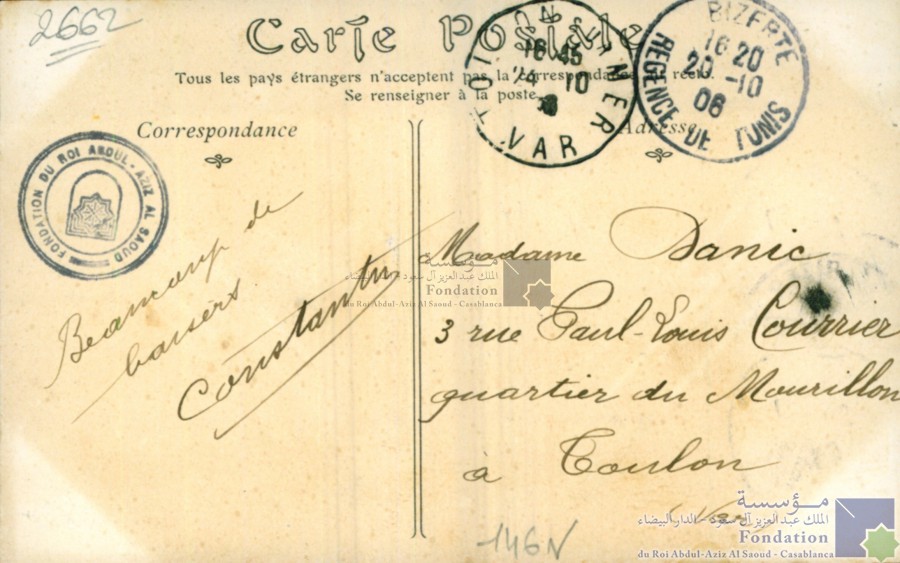 2662
Carte Postale
Tous les pays étrangers n'acceptent pas la correspondance au recto.
Se renseigner à la poste.
TOULON S. MER
16 45
24 10
VAR
BIZERTE
16 20
20 -10
06
REGENCE DE TUNIS
Correspondance
Adresse
FONDATION DU ROI ABDUL-AZIZ AL SAOUD
Beaucoup de
baisers
Constantin
Madame Danic
3 rue Paul-Louis Courrier
quartier du Mourillon
à Toulon
Var
146N
مؤسسة
الملك عبد العزيز آل سعود - الدار البيضاء
Fondation
du Roi Abdul-Aziz Al Saoud - Casablanca
مؤسسة
الملك عبد العزيز آل سعود - الدار البيضاء
Fondation
du Roi Abdul-Aziz Al Saoud - Casablanca